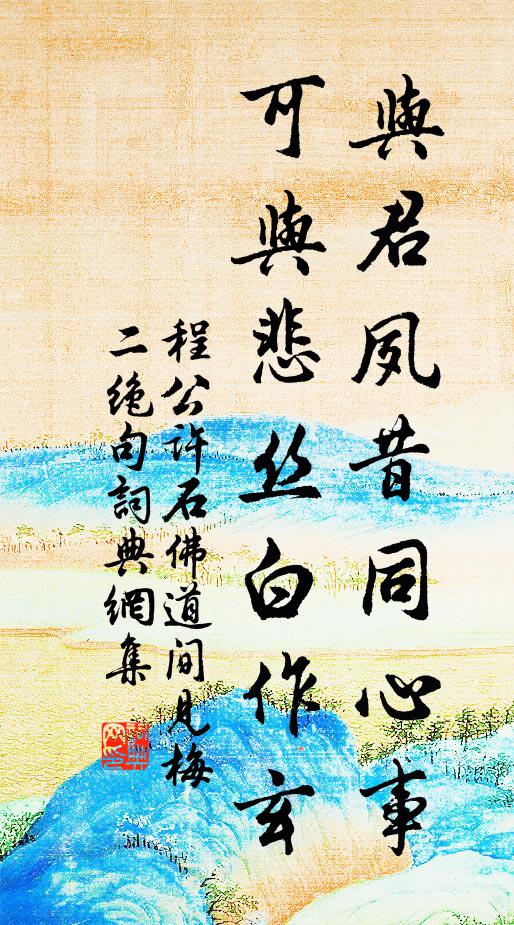 與君夙昔同心事
可與悲丝白作玄
程公许石佛道间见梅
二绝句詞典網集